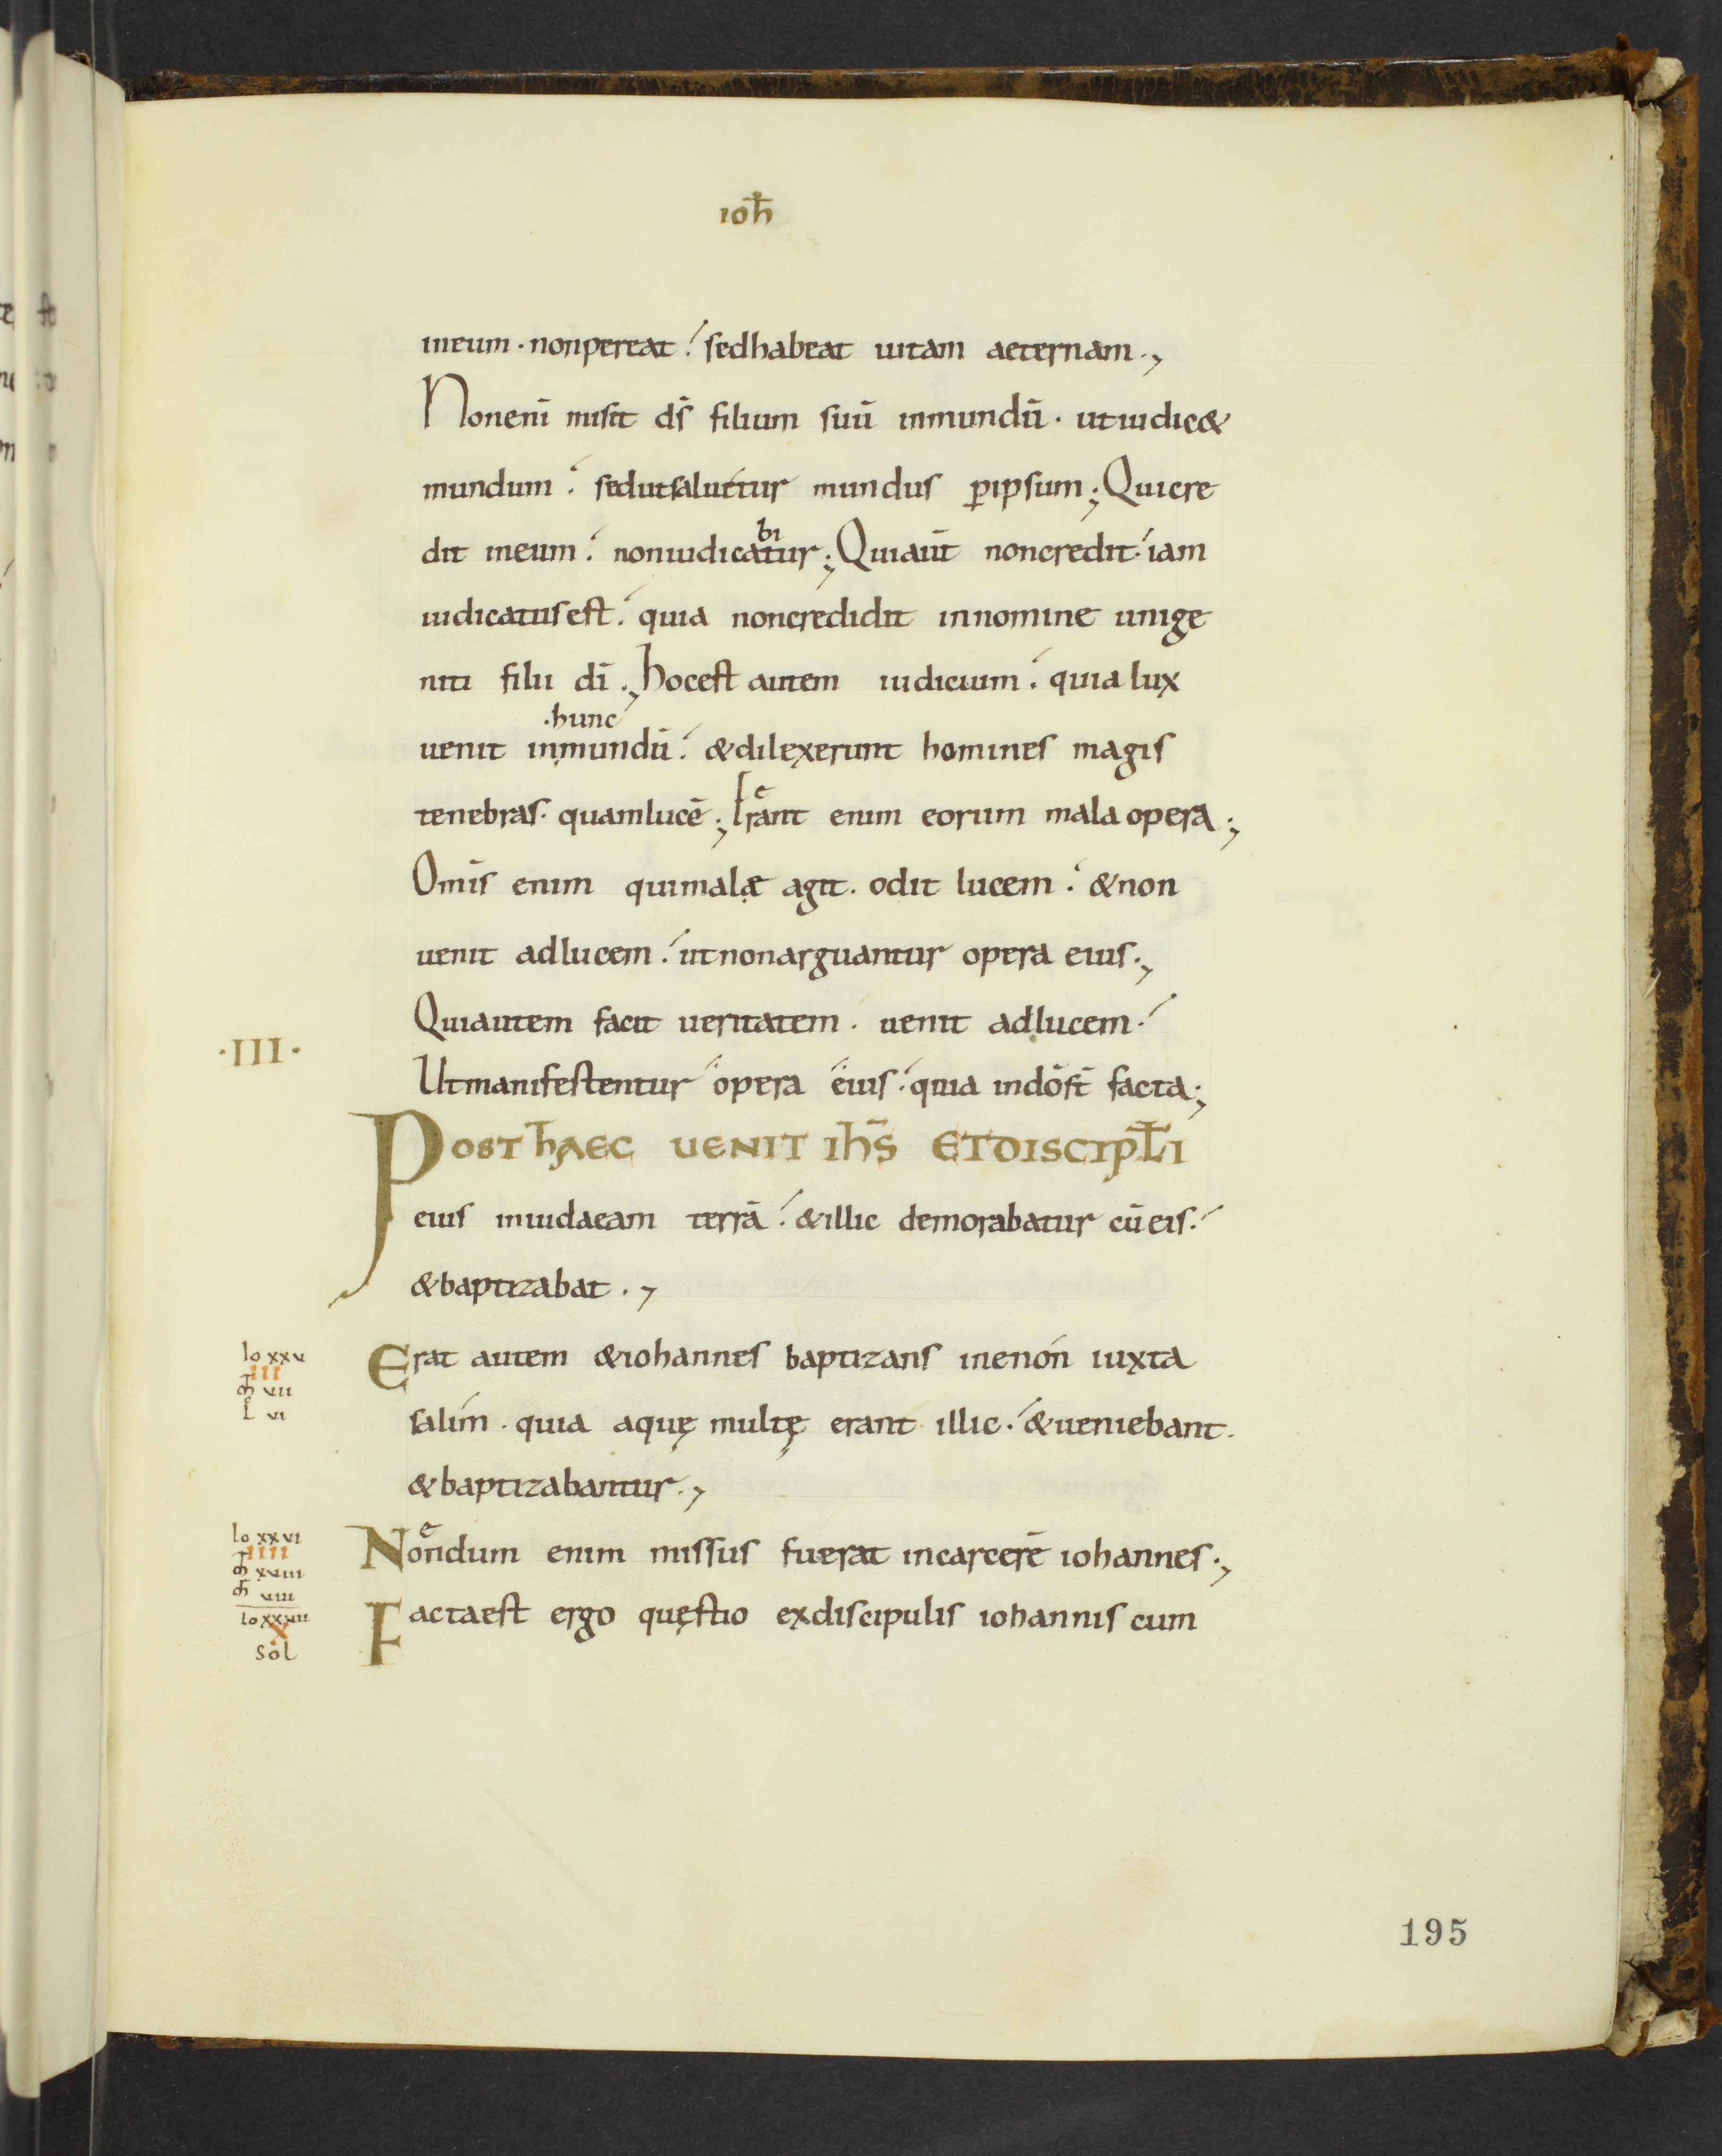 ioh̄
ineum · nonpereat ⁝ sedhabeat uitam aeternam ·,
Nonenī misit ds̄ filium suū inmundū · utiudic&
mundum ⁝ sedutsaluetur mundus ꝑipsum ; Quicre
dit ineum ⁝ noniudicatur ; Quiaūt noncredit · iam
bi
iudicatusest ⁝ quia noncredidit innomine unige
niti filii dī ; hocest autem iudicium ⁝ quia lux
· hunc
uenit inmundū ⁝ &dilexerunt homines magis
tenebras · quamlucē ; Erant enim eorum mala opera ;
Omīs enim quimalæ agit · odit lucem ⁝ &non
uenit adlucem ⁝ utnonarguantur opera eius ·,
Quiautem facit ueritatem · uenit adlucem ·
·III·
Utmanifestentur opera eius ⁝ quia indōst̄ facta ;
POST hAEC UENIT IhS̄ ETDISCIPŁI
eius iniudaeam terrā ⁝ &illic demorabatur cūeis ⁝
&baptizabat · ,
Io xxv
III
vii
L vi
Erat autem &iohannes baptizans inenón iuxta
salím · quia aquę multę erant illic · &ueniebant ·
&baptizabantur ·,
Io xxvi
IIII
xviii
viii
Nondum enim missus fuerat incarcerē iohannes ·,
e
Io xxvii
X
sol
Factaest ergo quęstio exdiscipulis iohannis cum
195